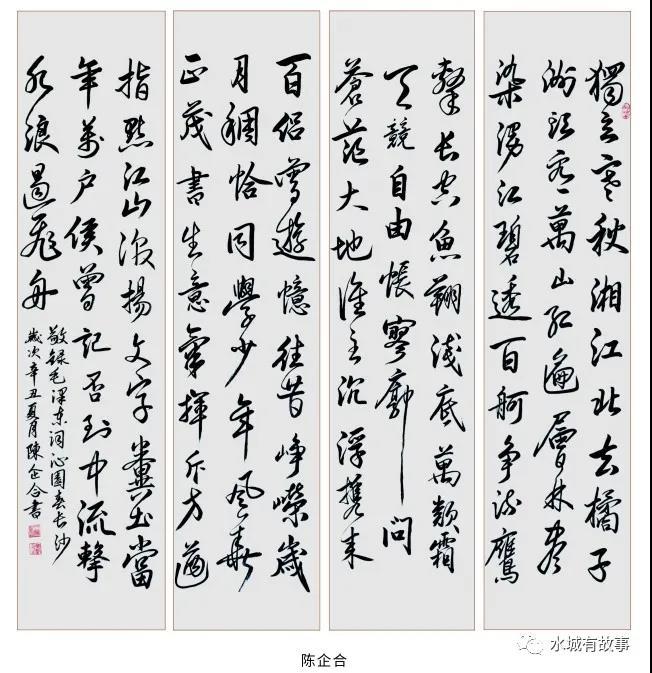 獨立寒秋湘江北去橘子
洲頭看萬山紅遍層林盡
染漫江碧透百舸争流鷹
擊长空魚翔浅底萬類霜
天競自由悵寥廓問
蒼茫大地谁主沉浮携来
百侣曾遊憶往昔峥嶸歲
月稠恰同學少年風華
正茂書生意氣揮斥方遒
指點江山激揚文字糞土當
年萬户侯曾記否到中流擊
水浪遏飛舟
敬録毛澤东词沁園春长沙
歲次辛丑夏月陳企合書
水城有故事
陈企合